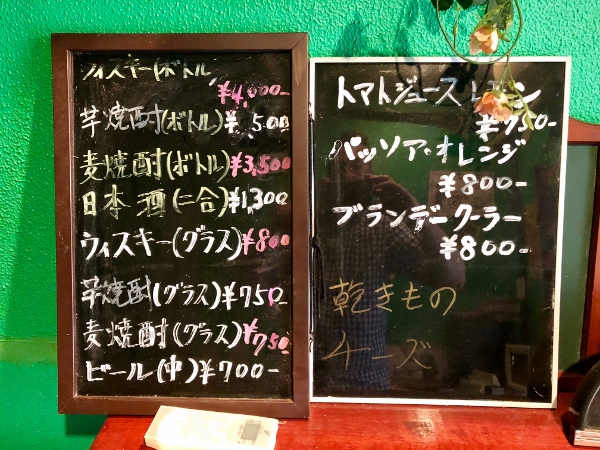 ウィスキー(ボトル)
¥4,000-
芋焼酎(ボトル)¥ 500
麦焼酎(ボトル)¥3,500
日本酒(二合)¥1,300
ウィスキー(グラス)¥800
芋焼酎(グラス)¥750
麦焼酎(グラス)¥750
ビール(中)¥700-
トマトジュース
¥750-
パッソア・オレンジ
¥800-
ブランデークーラー
¥800-
乾きもの
チーズ